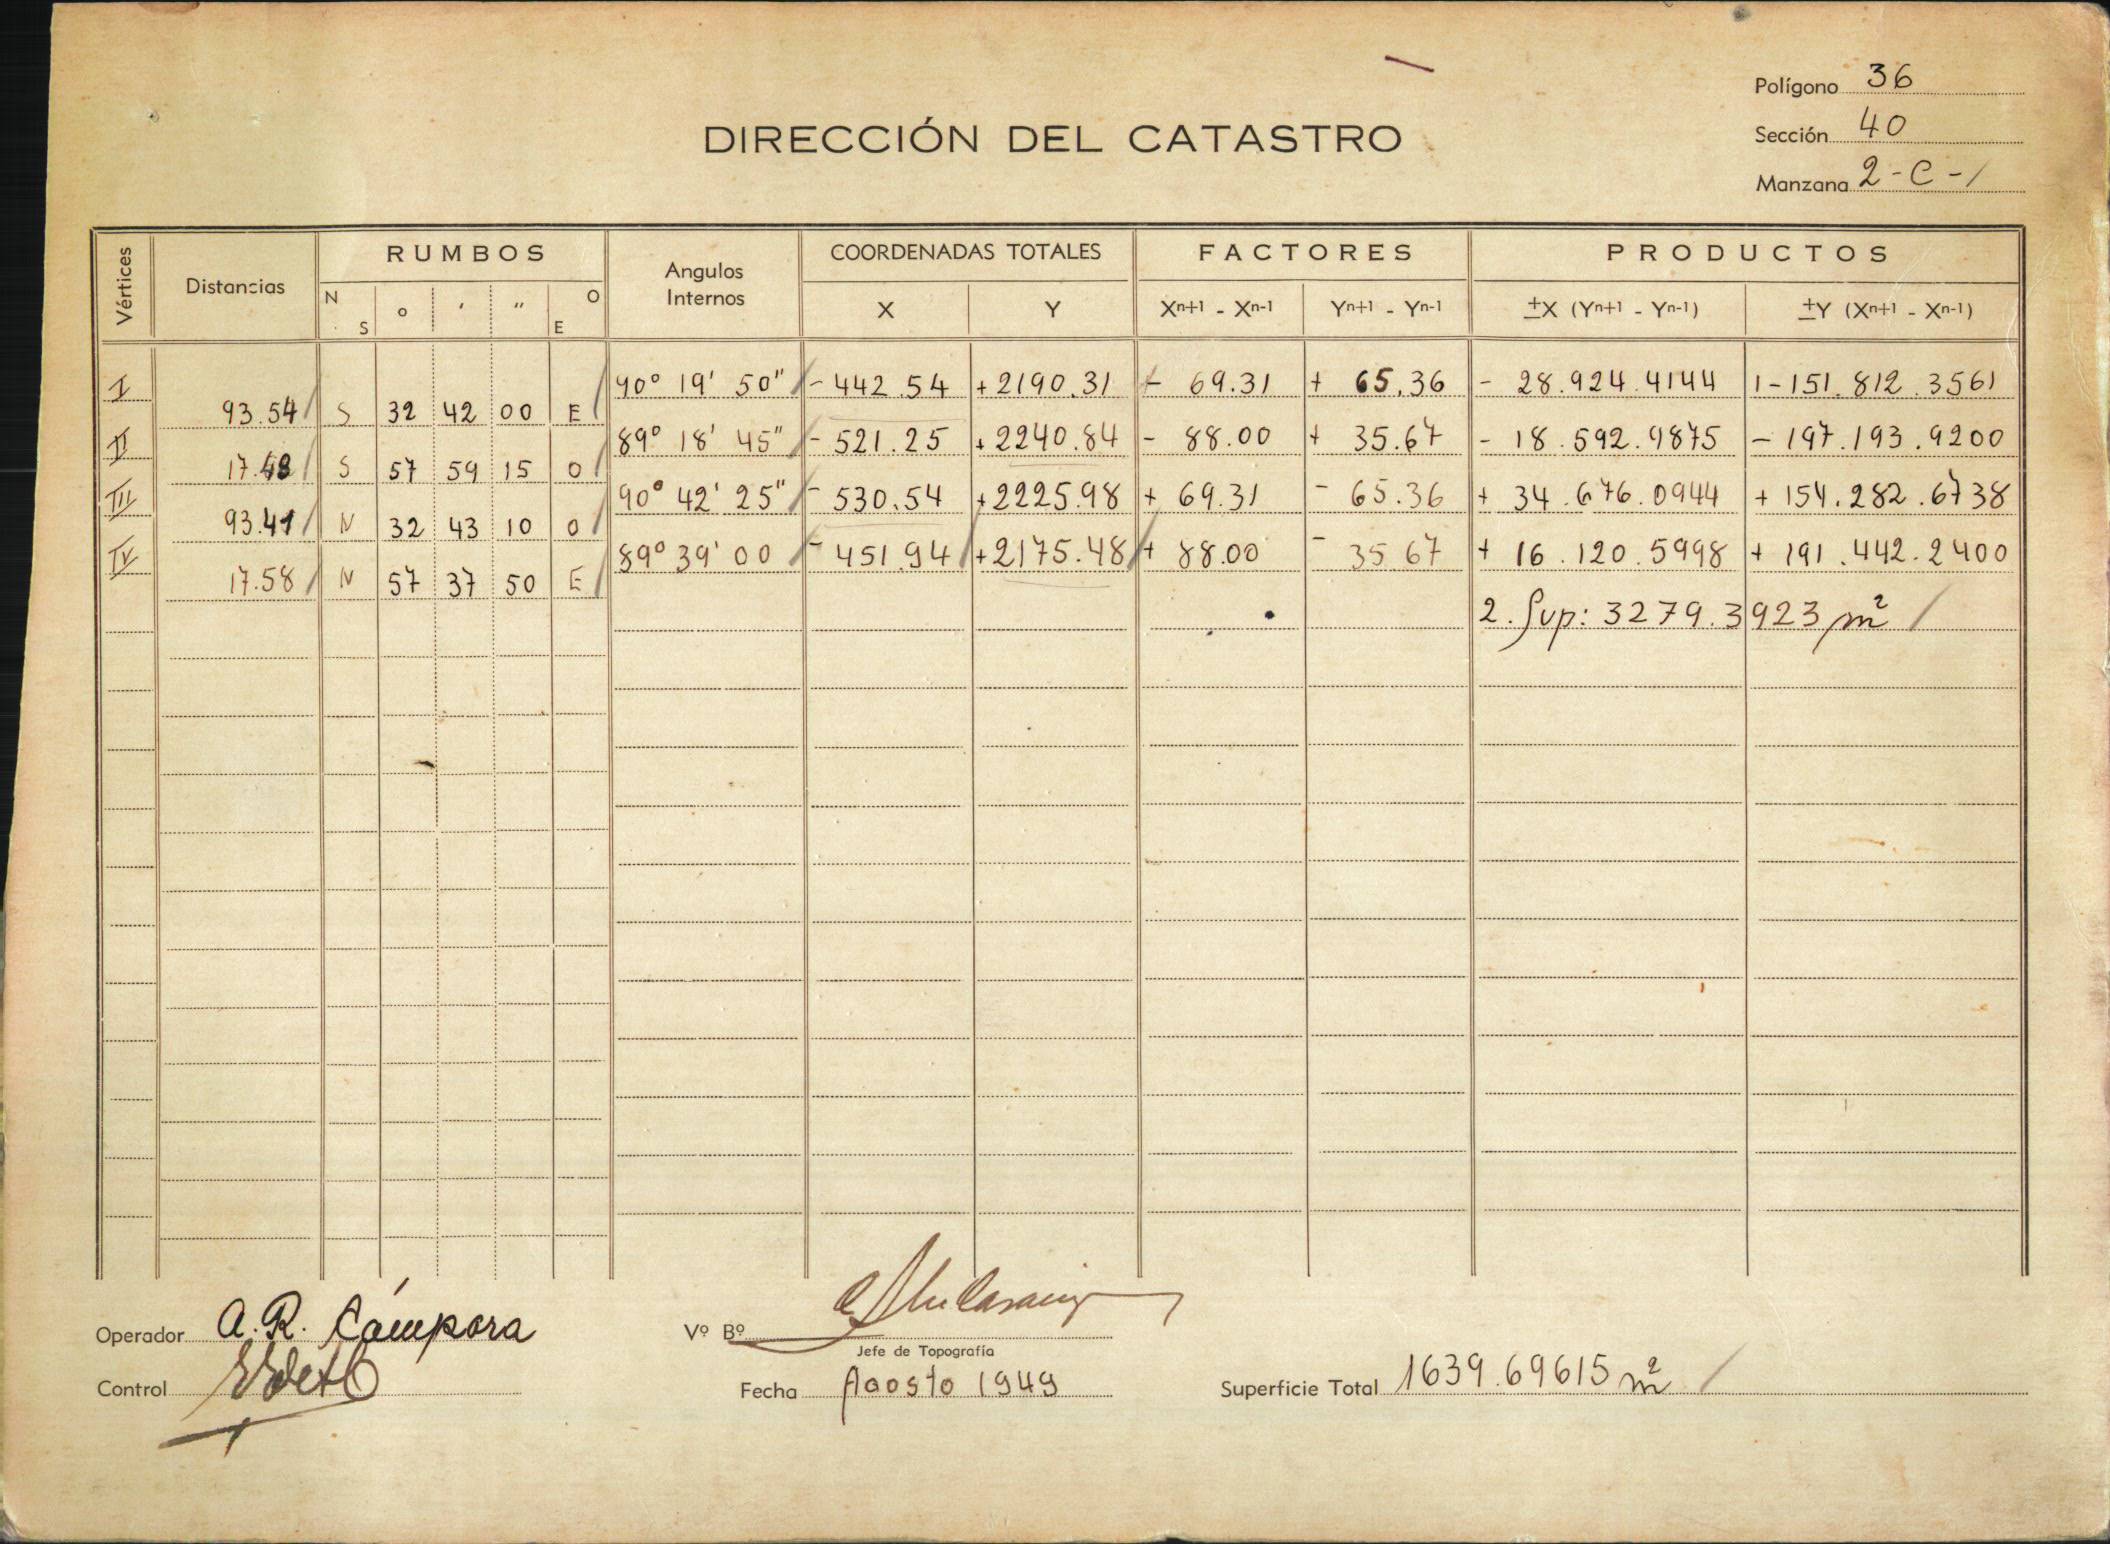 Polígono 36
DIRECCIÓN DEL CATASTRO
Sección 40
Manzana 2-C-1
Vértices Distancias RUMBOS Angulos Internos COORDENADAS TOTALES FACTORES PRODUCTOS
N S ° ' " O E X Y Xn+1 - Xn-1 Yn+1 - Yn-1 ±X (Yn+1 - Yn-1) ±Y (Xn+1 - Xn-1)
I 90° 19' 50" - 442.54 +2190.31 - 69.31 + 65.36 - 28.924.4144 - 151.812.3561
93.54 S 32 42 00 E
II 89° 18' 45" - 521.25 +2240.84 - 88.00 + 35.67 - 18.592.9875 - 197.193.9200
17.48 S 57 59 15 O
III 90° 42' 25" - 530.54 +2225.98 + 69.31 - 65.36 + 34.676.0944 + 154.282.6738
93.41 N 32 43 10 O
IV 89° 39' 00 - 451.94 +2175.48 + 88.00 - 35.67 + 16.120.5998 + 191.442.2400
17.58 N 57 37 50 E
2. Sup: 3279.3923 m²
Operador A. R. Cámpora
Vº Bº
Jefe de Topografía
Control
Fecha Agosto 1949
Superficie Total 1639.69615 m²